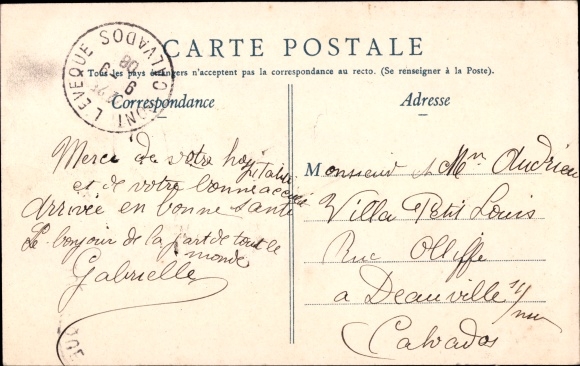 CARTE POSTALE
Tous les pays étrangers n'acceptent pas la correspondance au recto. (Se renseigner à la Poste).
Correspondance
Adresse
PONT L'EVEQUE CALVADOS
9 9
08
Merci de votre hospitalité
et de votre bonne accueil
arrivée en bonne santé
Le bonjour de la part de tout le
monde
Gabrielle
Monsieur & Mme Andrieu
Villa Petit Louis
Rue Olliffe
a Deauville s/
mer
Calvados